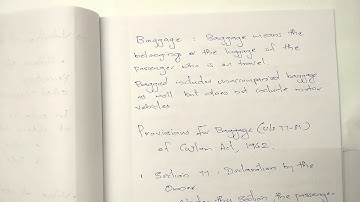 Baggage : Baggage means the
belongings or the luggage of the
passenger who is on travel.
Bagged includes unaccompanied baggage
as well but does not include motor
vehicles.
Provisions for Baggage (U/s 77-81)
of Custom Act, 1962.
1. Section 77 : Declaration by the
Owner
Under this section the passenge-